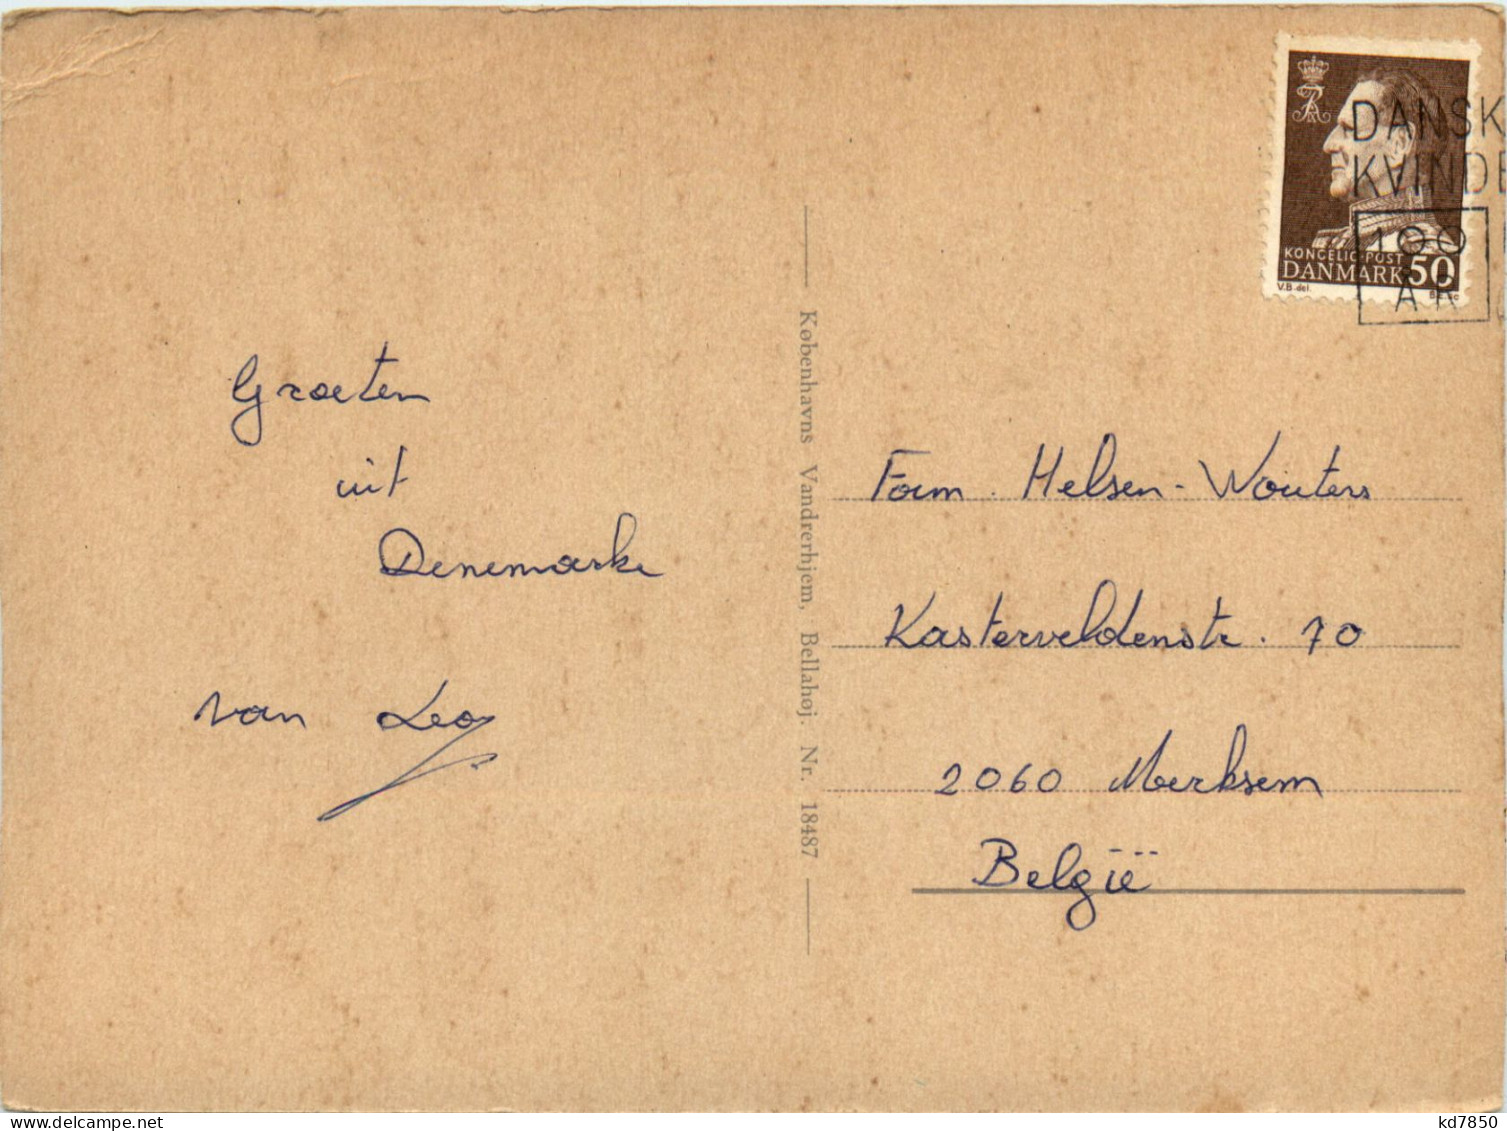 Groeten
uit
Denemarke
van Leo
Københavns Vandrerhjem, Bellahøj. Nr. 18487
DANSK
KVINDE
100
ÅR
KONGELIG POST
DANMARK 50
V.B. del.
Fam. Helsen-Wouters
Kasterveldenstr. 70
2060 Merksem
België
kd7850